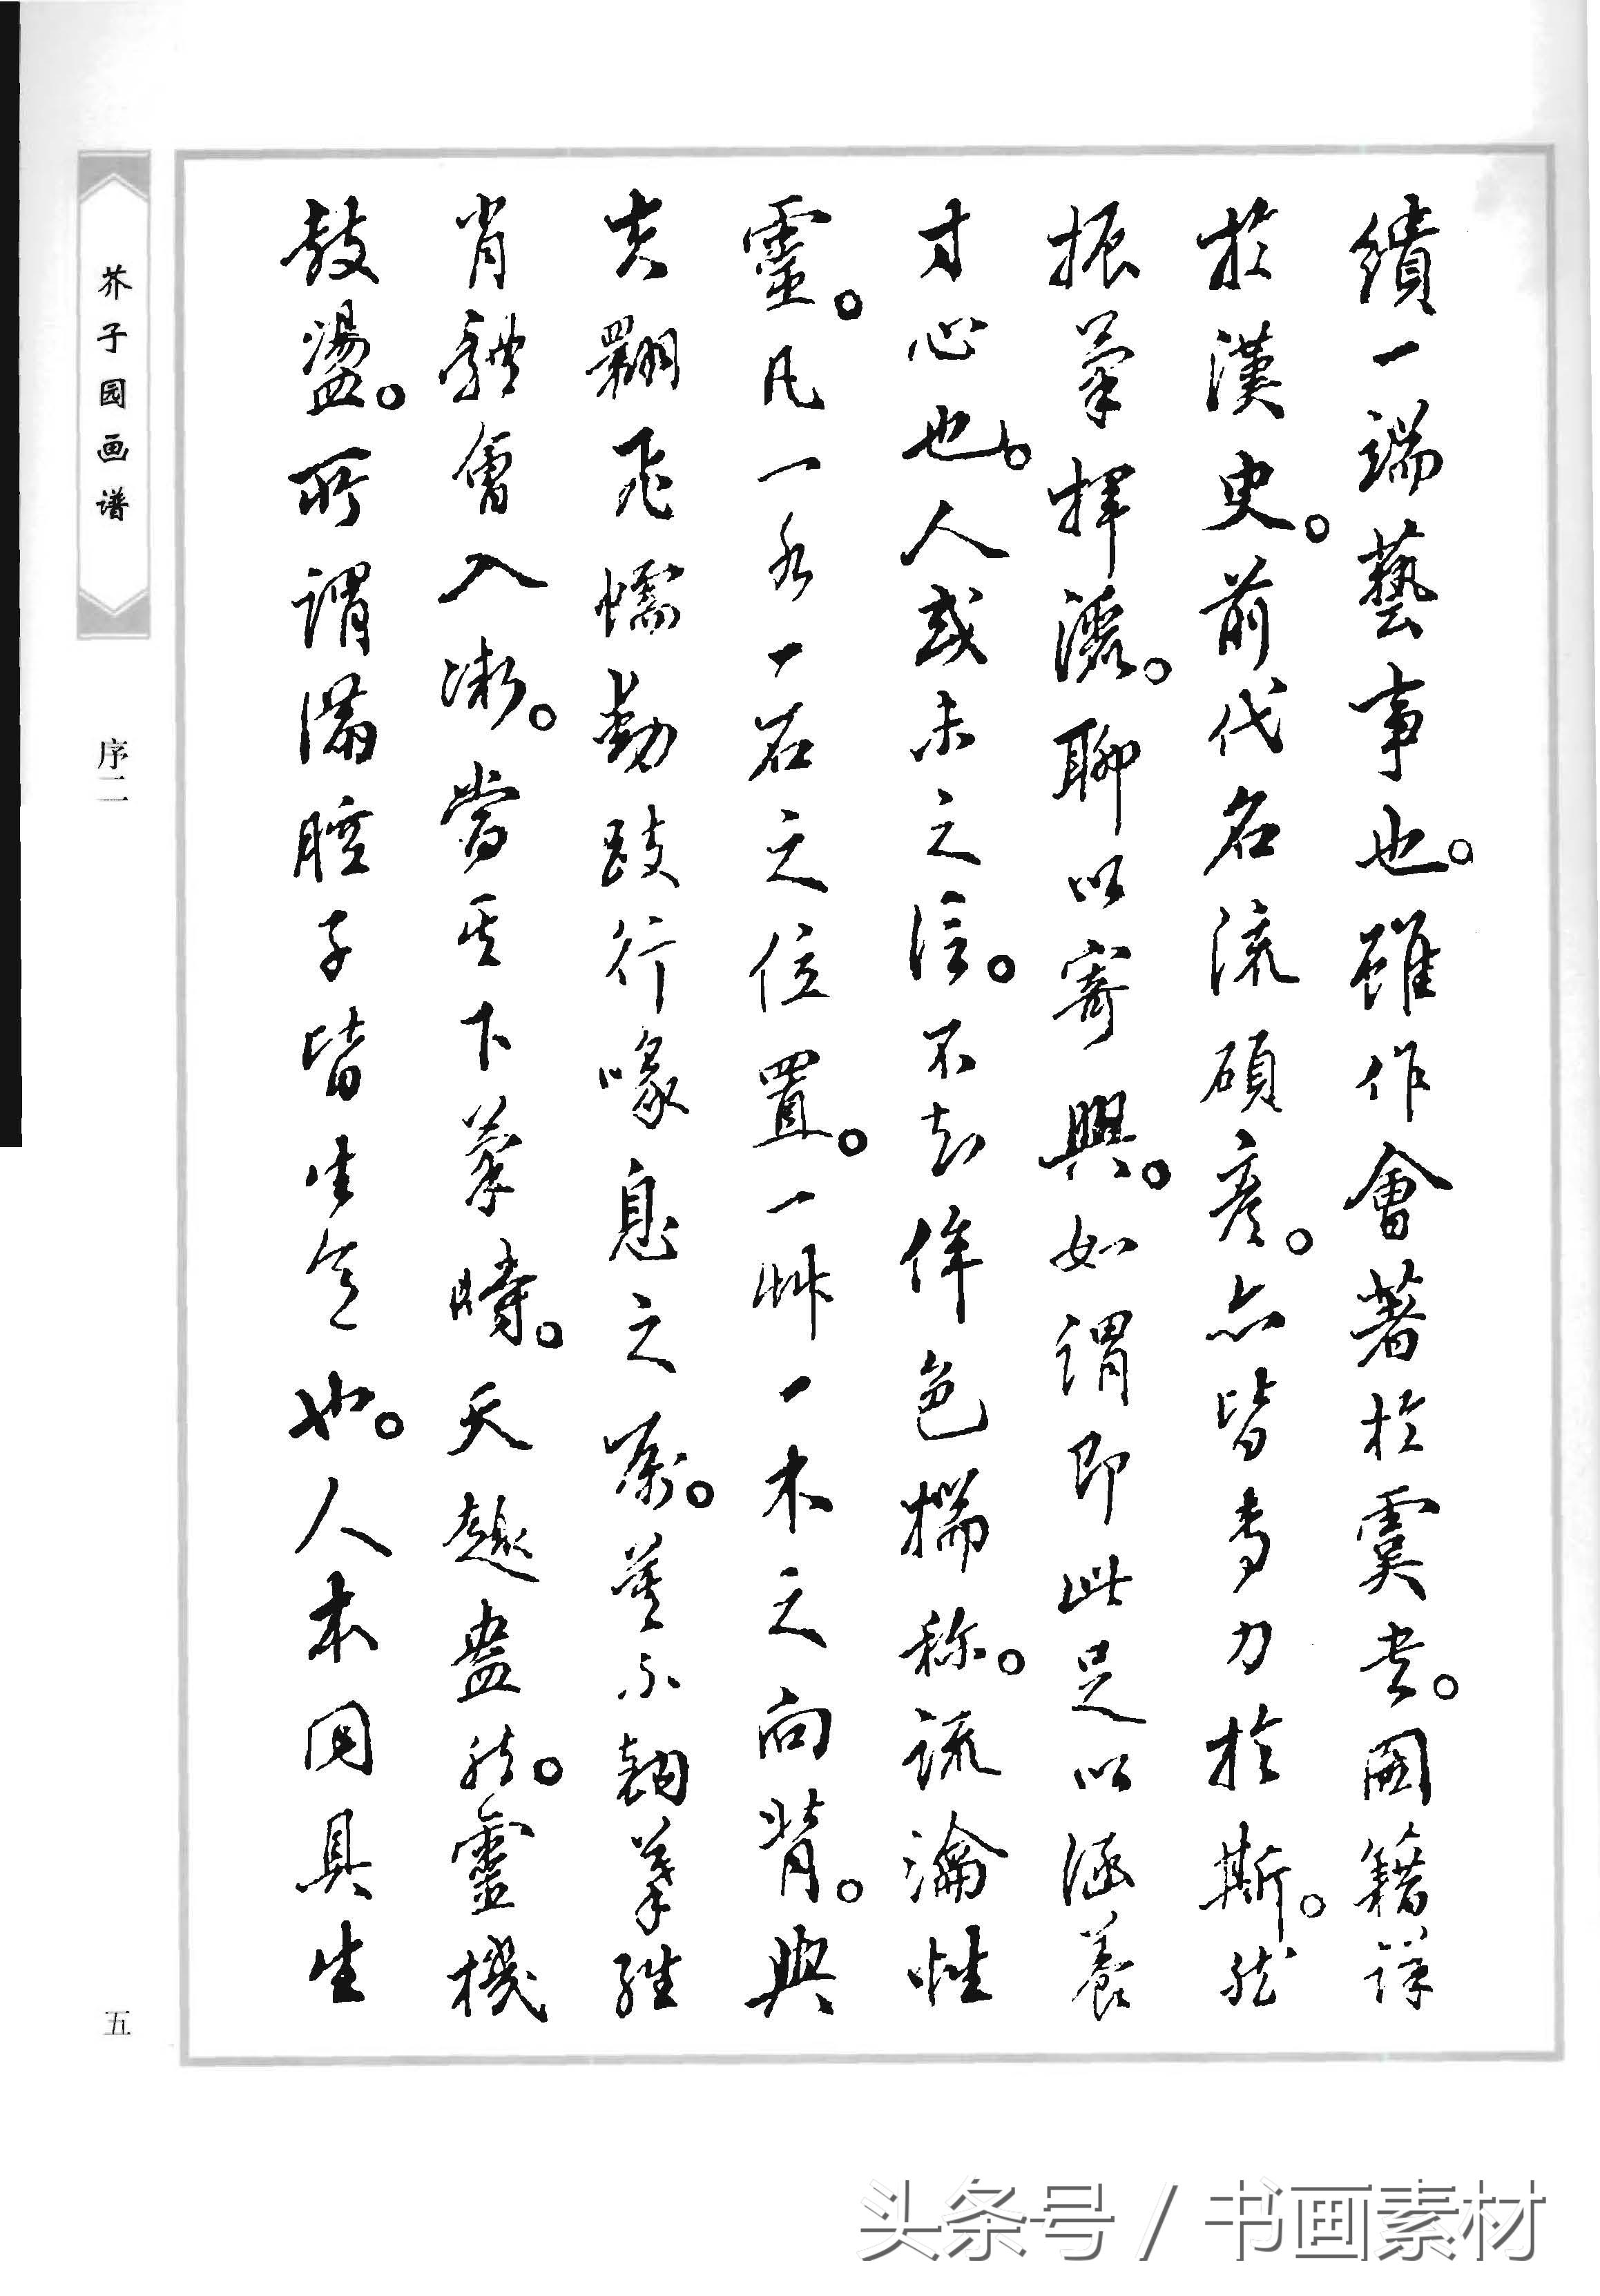 繢一端藝事也。雖作會著於虞書。圖籍詳
於漢史。前代名流碩彥。亦皆專力於斯。然
振筆揮灑。聊以寄興。如謂即此足以涵養
才心也。人或未之信。不知侔色揣称。疏瀹性
靈。凡一水一石之位置。一艸一木之向背。與
夫翾飛蠕動跂行喙息之屬。莫不翱筆維
肖體會入微。當其下筆時。天趣盎然。靈機
鼓盪。所謂滿腔子皆生意也。人本同具生
芥子园画谱
序二
五
头条号 / 书画素材